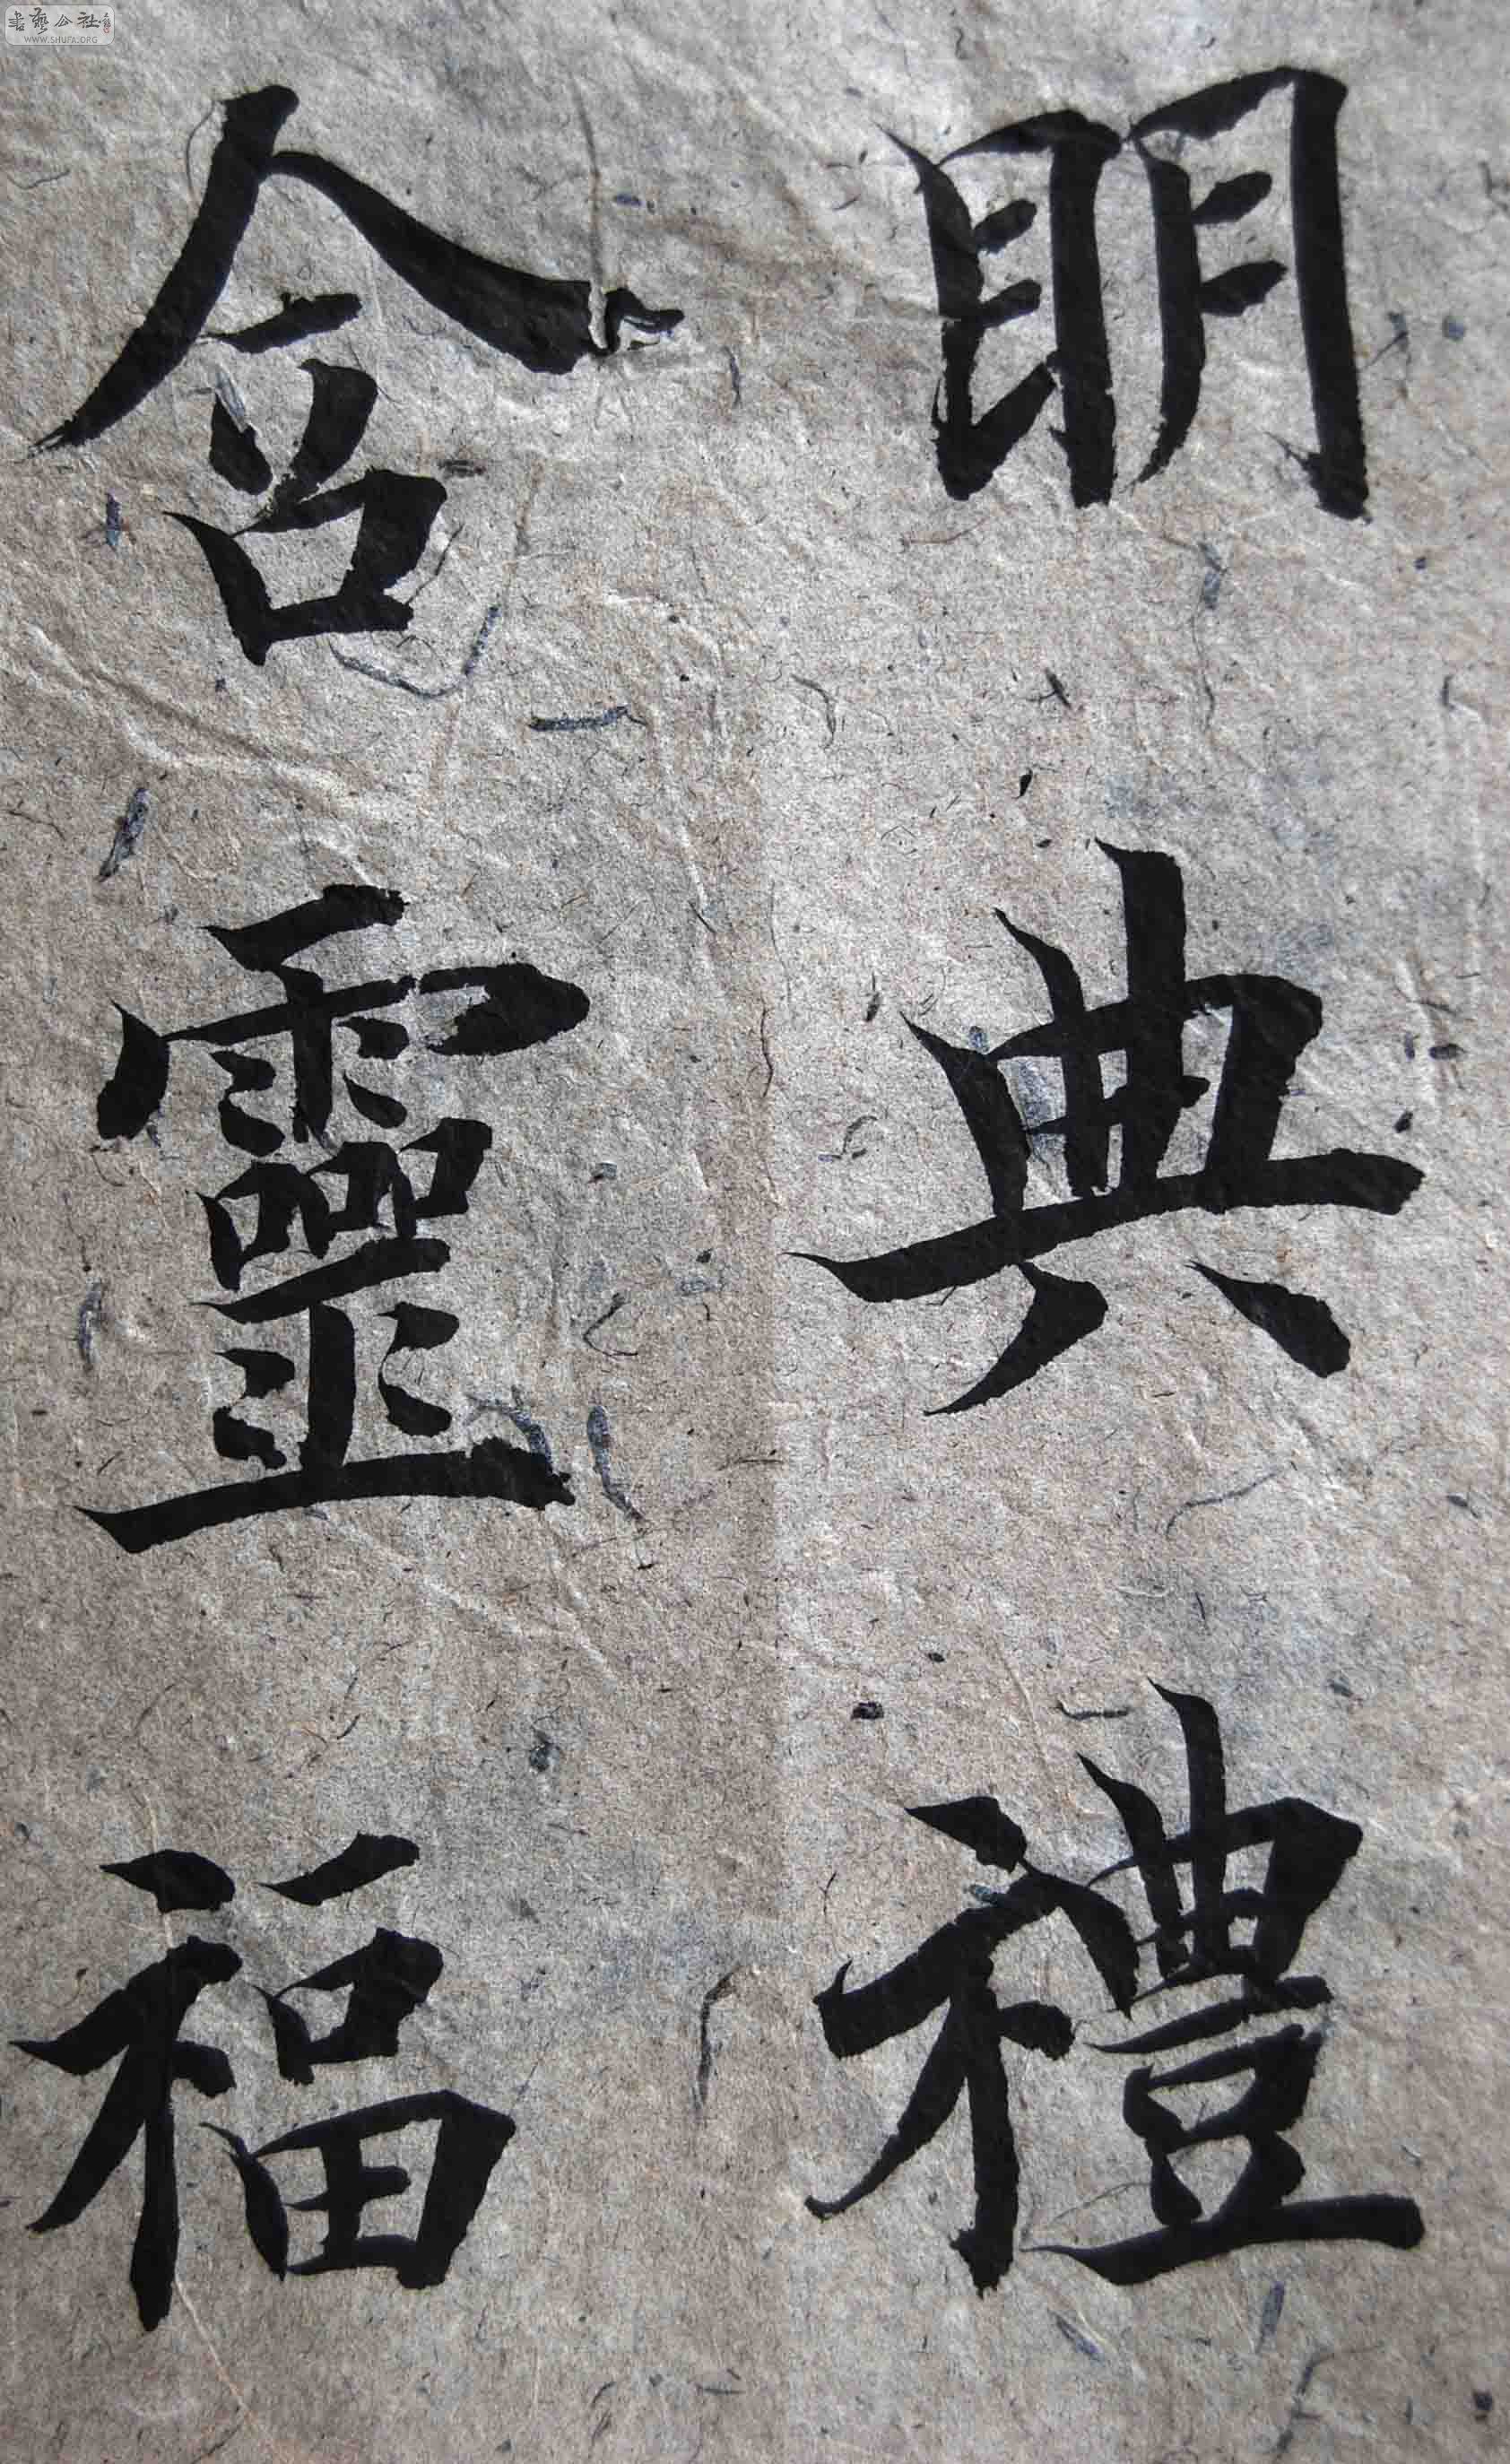 明典禮
含靈福
書藝公社
WWW.SHUFA.ORG